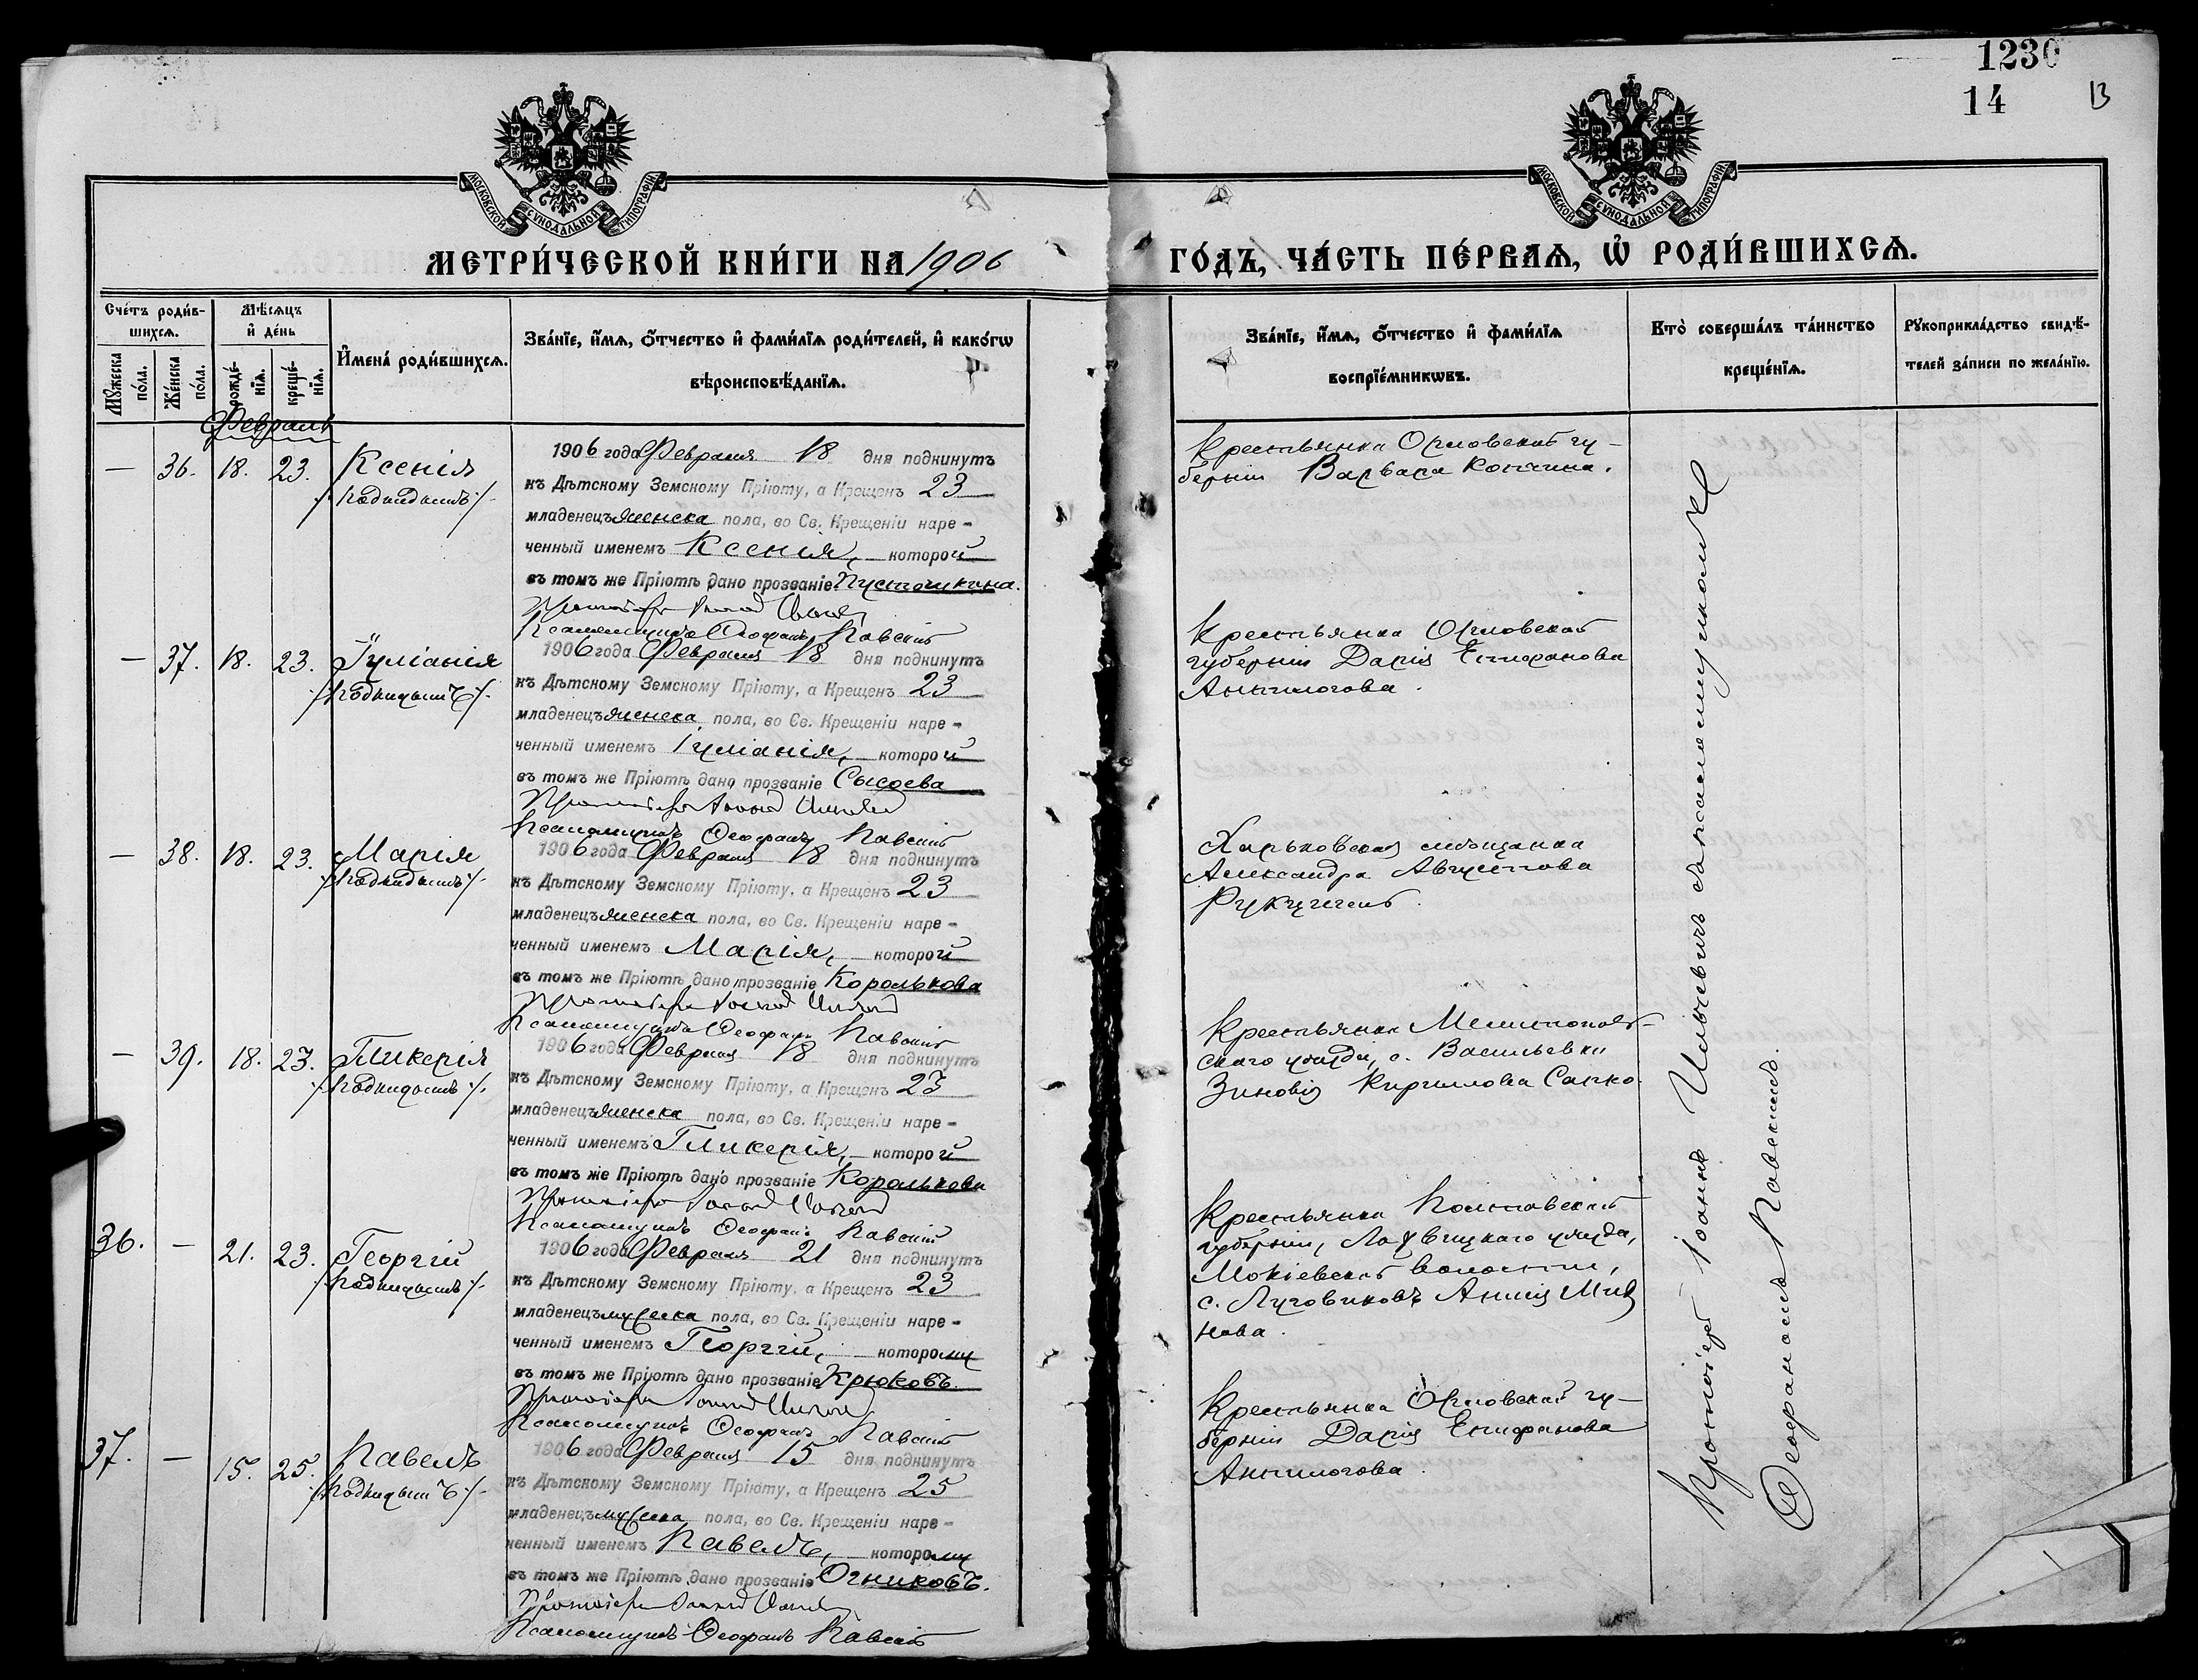 1230
14
13
МОСКОВСКОЙ СѴНОДАЛЬНОЙ ТИПОГРАФІИ
МОСКОВСКОЙ СѴНОДАЛЬНОЙ ТИПОГРАФІИ
МЕТРИ́ЧЕСКОЙ КНИ́ГИ НА 1906
ГО́ДЪ, ЧА́СТЬ ПЕ́РВАѦ, Ѽ РОДИ́ВШИХСѦ.
Сче́тъ роди́вшихсѧ.
Мꙋ́жеска по́ла.
Же́нска по́ла.
Мѣ́сѧцъ и҆ де́нь
рожде́нїѧ.
креще́нїѧ.
И҆мена̀ роди́вшихсѧ.
Зва́нїе, и҆́мѧ, ѻ҆́тчество и҆ фами́лїѧ роди́телей, и҆ како́гѡ
вѣроисповѣ́данїѧ.
Зва́нїе, и҆́мѧ, ѻ҆́тчество и҆ фами́лїѧ
воспрїе́мникѡвъ.
Кто̀ соверша́лъ та́инство
креще́нїѧ.
Рꙋкоприкла́дство свидѣ́-
телей за́писи по жела́нїю.
Февраль
— 36. 18. 23. Ксенія
/подкидышъ/.
1906 года Февраля 18 дня подкинутъ
къ Дѣтскому Земскому Пріюту, а Крещенъ 23
младенецъ женска пола, во Св. Крещеніи наре-
ченный именемъ Ксенія, которой
въ томъ же Пріютѣ дано прозваніе Пустошкина.
Протоіерей Іоаннъ
Псаломщикъ Ѳеофанъ Павскій
Крестьянка Орловской гу-
берніи Варвара
— 37. 18. 23. Іуліанія
/подкидышъ/.
1906 года Февраля 18 дня подкинутъ
къ Дѣтскому Земскому Пріюту, а Крещенъ 23
младенецъ женска пола, во Св. Крещеніи наре-
ченный именемъ Іуліанія, которой
въ томъ же Пріютѣ дано прозваніе Сысоева
Протоіерей Іоаннъ
Псаломщикъ Ѳеофанъ Павскій
Крестьянка Орловской
губерніи Дарія Епифанова
Анпилогова.
— 38. 18. 23. Марія
/подкидышъ/.
1906 года Февраля 18 дня подкинутъ
къ Дѣтскому Земскому Пріюту, а Крещенъ 23
младенецъ женска пола, во Св. Крещеніи наре-
ченный именемъ Марія, которой
въ томъ же Пріютѣ дано прозваніе Королькова
Протоіерей Іоаннъ
Псаломщикъ Ѳеофанъ Павскій
Харьковская мѣщанка
Александра Августова
— 39. 18. 23. Гликерія
/подкидышъ/.
1906 года Февраля 18 дня подкинутъ
къ Дѣтскому Земскому Пріюту, а Крещенъ 23
младенецъ женска пола, во Св. Крещеніи наре-
ченный именемъ Гликерія, которой
въ томъ же Пріютѣ дано прозваніе Королькова
Протоіерей Іоаннъ
Псаломщикъ Ѳеофанъ Павскій
Крестьянка Мелитополь-
скаго уѣзда, с. Васильевки
Зиновія Кириллова Сапко.
36. — 21. 23. Георгій
/подкидышъ/.
1906 года Февраля 21 дня подкинутъ
къ Дѣтскому Земскому Пріюту, а Крещенъ 23
младенецъ мужеска пола, во Св. Крещеніи наре-
ченный именемъ Георгій, которому
въ томъ же Пріютѣ дано прозваніе Крюковъ.
Протоіерей Іоаннъ
Псаломщикъ Ѳеофанъ Павскій
Крестьянка Полтавской
губерніи, Лохвицкаго уѣзда,
Мокіевской волости,
с. Луговиковъ Анна
37. — 15. 25. Павелъ
/подкидышъ/.
1906 года Февраля 15 дня подкинутъ
къ Дѣтскому Земскому Пріюту, а Крещенъ 25
младенецъ мужеска пола, во Св. Крещеніи наре-
ченный именемъ Павелъ, которому
въ томъ же Пріютѣ дано прозваніе Огниковъ.
Протоіерей Іоаннъ
Псаломщикъ Ѳеофанъ Павскій
Крестьянка Орловской гу-
берніи Дарія Епифанова
Анпилогова.
Протоіерей Іоаннъ съ псаломщикомъ
Ѳеофаномъ Павскимъ.